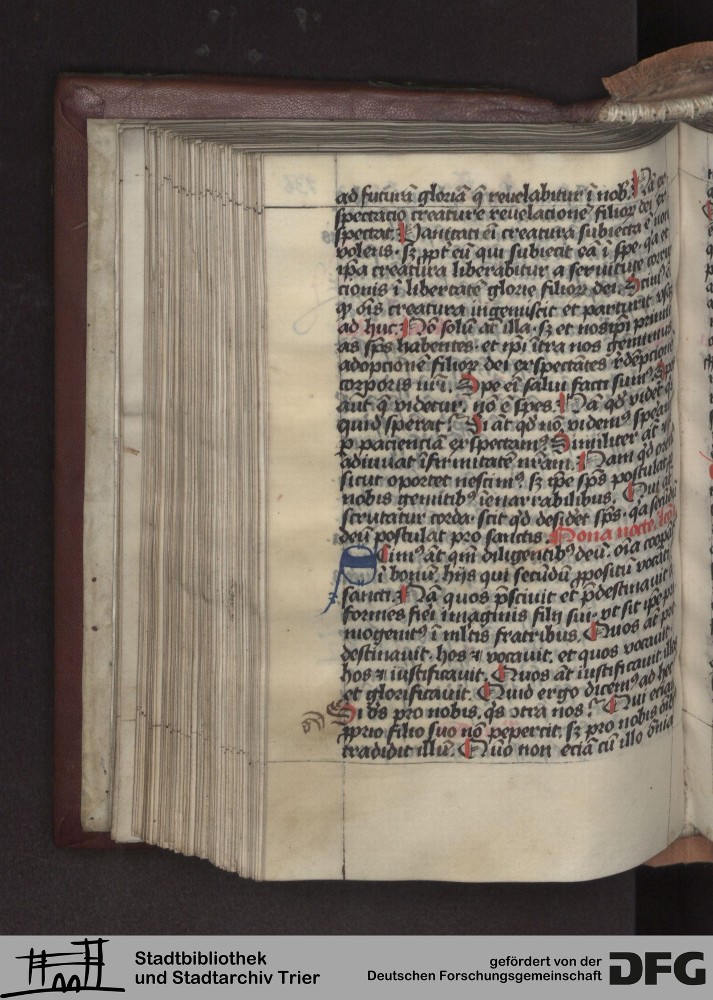 ad futurā gloriā q̄ reuelabitur ī nob᷒. Nā ex
spectatio creature reuelationē filioꝝ dei ex
spectat. Vanitati eī creatura subiecta ē nō
volens. sꝫ ꝓpt̄ eū qui subiecit eā ī spe. qa et
ip̄a creatura liberabitur a seruitute corrup
cionis ī libertatē glorie filioꝝ dei. Scim᷒ eī
qꝫ oīs creatura ingemiscit et parturit vsqꝫ
ad huc. Nō solū āt illa. sꝫ et nosip̄i primiti
as sp̄s habentes. et ip̄i ītra nos gemimus
adoptionē filioꝝ dei exspectātes rēdēpcionē
corporis nr̄i. Spe eī salui facti sum᷒. Spes
aut q̄ videtur. nō ē spes. Nā qd̄ videt qs
quid sperat? Si āt qd̄ nō videm᷒ speram᷒
p pacienciā exspectam᷒. Similiter āt et sp̄s
adiuuat īfirmitatē nr̄am. Nam qd̄ orem᷒
sicut oportet nescim᷒. sꝫ ip̄e sp̄s postulat ꝓ
nobis gemitib᷒ īenarrabilibus. Qui āt
scrutatur corda. scit qd̄ desid̄et sp̄s. qa secūdū
deū postulat pro sanctis. Sona nocte. lc̄o
Scim᷒ āt qm̄ diligentib᷒ deū. oīa coopāt̄
ī bonū. hijs qui secūdū ꝓpositū vocati
sancti. Nā quos p̄sciuit et p̄destinauit cō
formes fieī imaginis filij sui. vt sit ip̄e pri
mogenit᷒ ī ml̄tis fratribus. Quos āt pre
destinauit. hos ⁊ vocauit. et quos vocauit.
hos ⁊ iustificauit. Quos āt iustificauit. illos
et glorificauit. Quid ergo dicem᷒ ad hec
Si de᷒ pro nobis. qs ɔtra nos? Qui eciā
ꝓprio filio suo nō pepercit. sꝫ pro nobis oīb᷒
tradidit illū. Quō non eciā cū illo oīnia
Stadtbibliothek
und Stadtarchiv Trier
gefördert von der
Deutschen Forschungsgemeinschaft
DFG